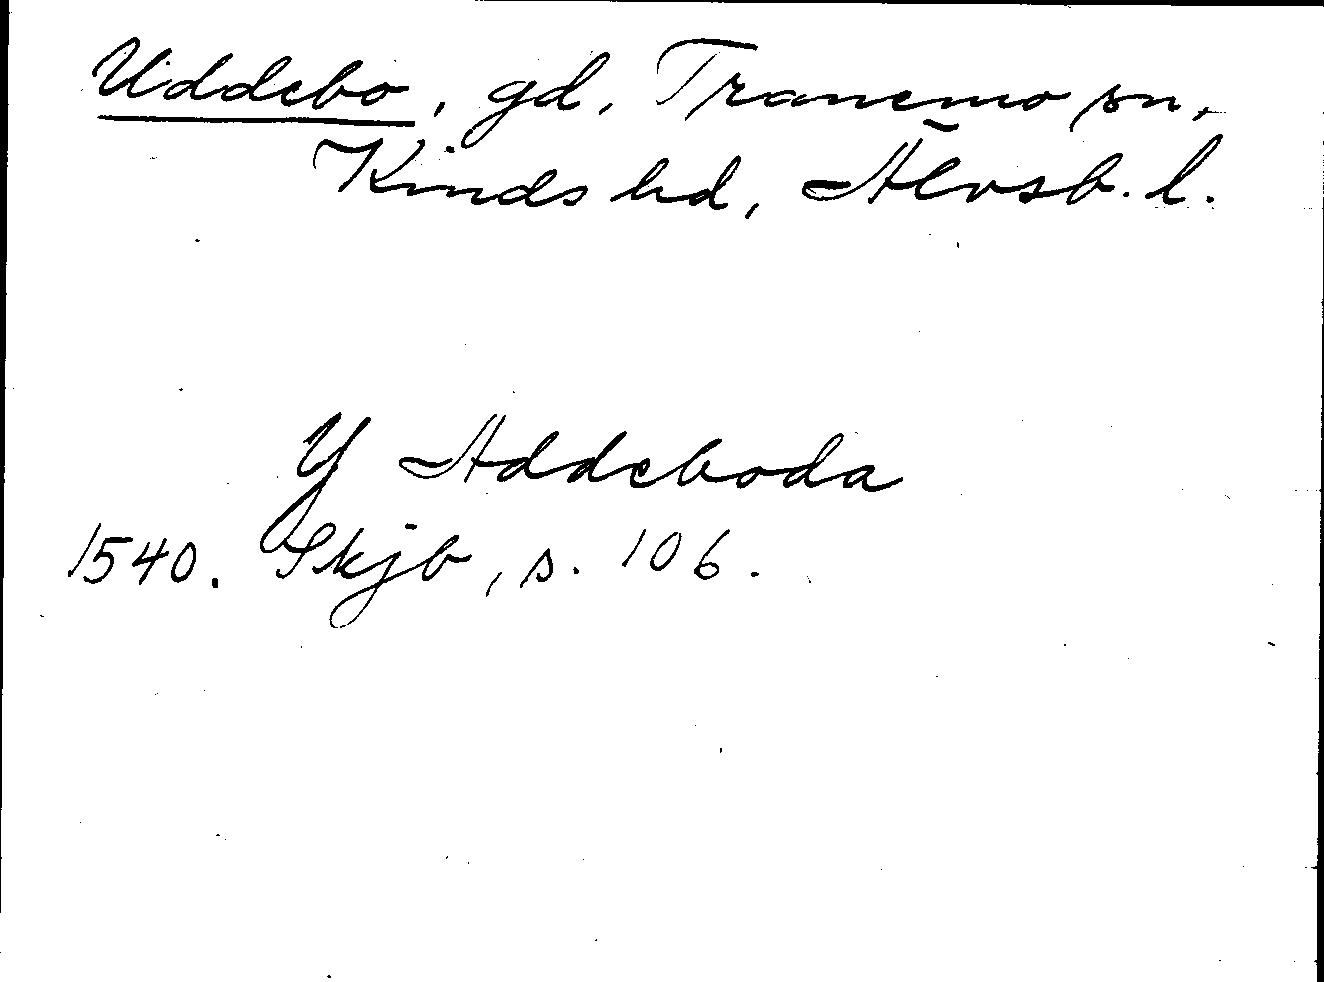 Uddebo, gd, Tranemo sn,
Kinds hd, Älvsb. l.
Y Addeboda
1540. Skjb, s. 106.